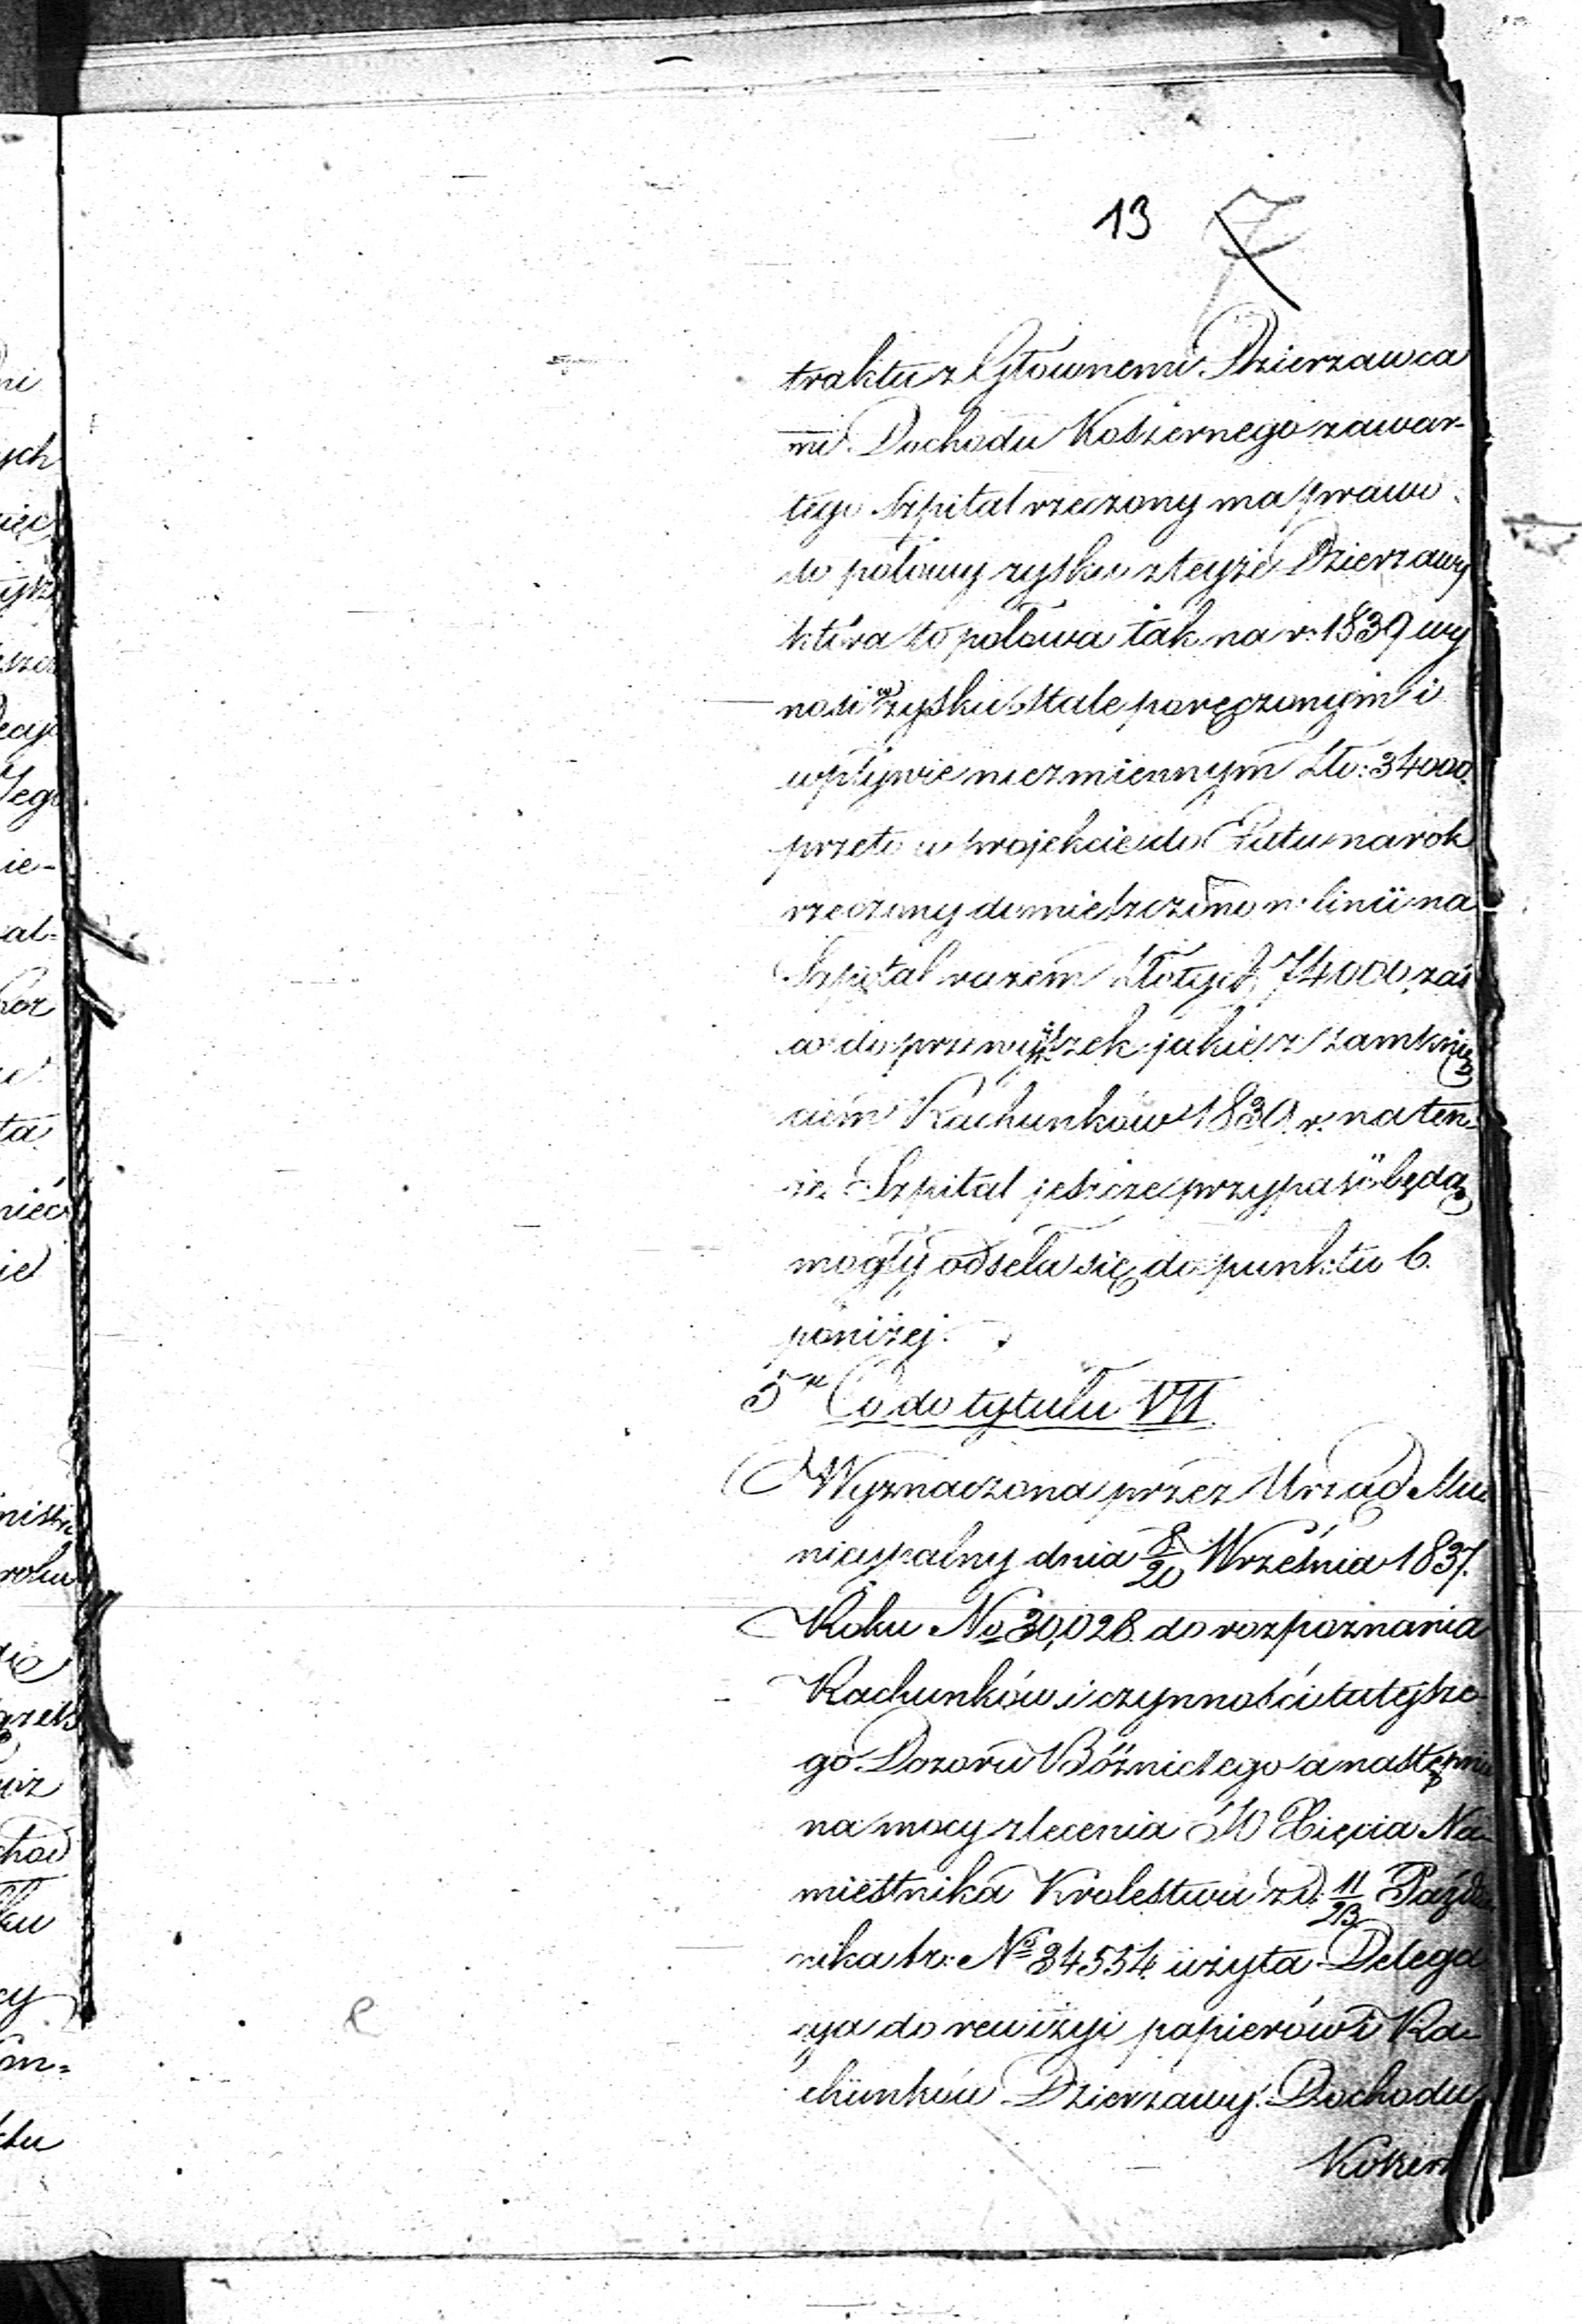 13 7
traktu z Głównemi Dzierzawca
mi Dochodu Koszernego zawar-
tego Szpital rzeczony ma prawo
do połowy zysku z teyże Dzierzawy
która to połowa tak na r. 1839 wy
nosi w zysku stale poręczonym i
wpływie niezmiennym Złp: 34000.
przeto w projekcie do Etatu na rok
rzeczony domieszczono w linii na
Szpital razem Złotych 74000, zaś
co do przewyższek jakie z zamknię
ciem Rachunków 1839. r. na ten-
że Szpital jeszcze przypaść będą
mogły odseła się do punktu 6.
poniżej.
5te Co do tytułu VII
Wyznaczona przez Urząd Mu
nicypalny dnia 8/20 Września 1837.
Roku No 30,028. do rozpoznania
Rachunków i czynności tutejsze-
go Dozoru Bóźniczego a następnie
na mocy zlecenia JO Xięcia Na-
miestnika Krolestwa z d. 11/23 Paźdz
nika t.r. No 34554. użyta Delega
cya do rewizyi papierów i Ra-
chunków Dzierzawy Dochodu
Koszern